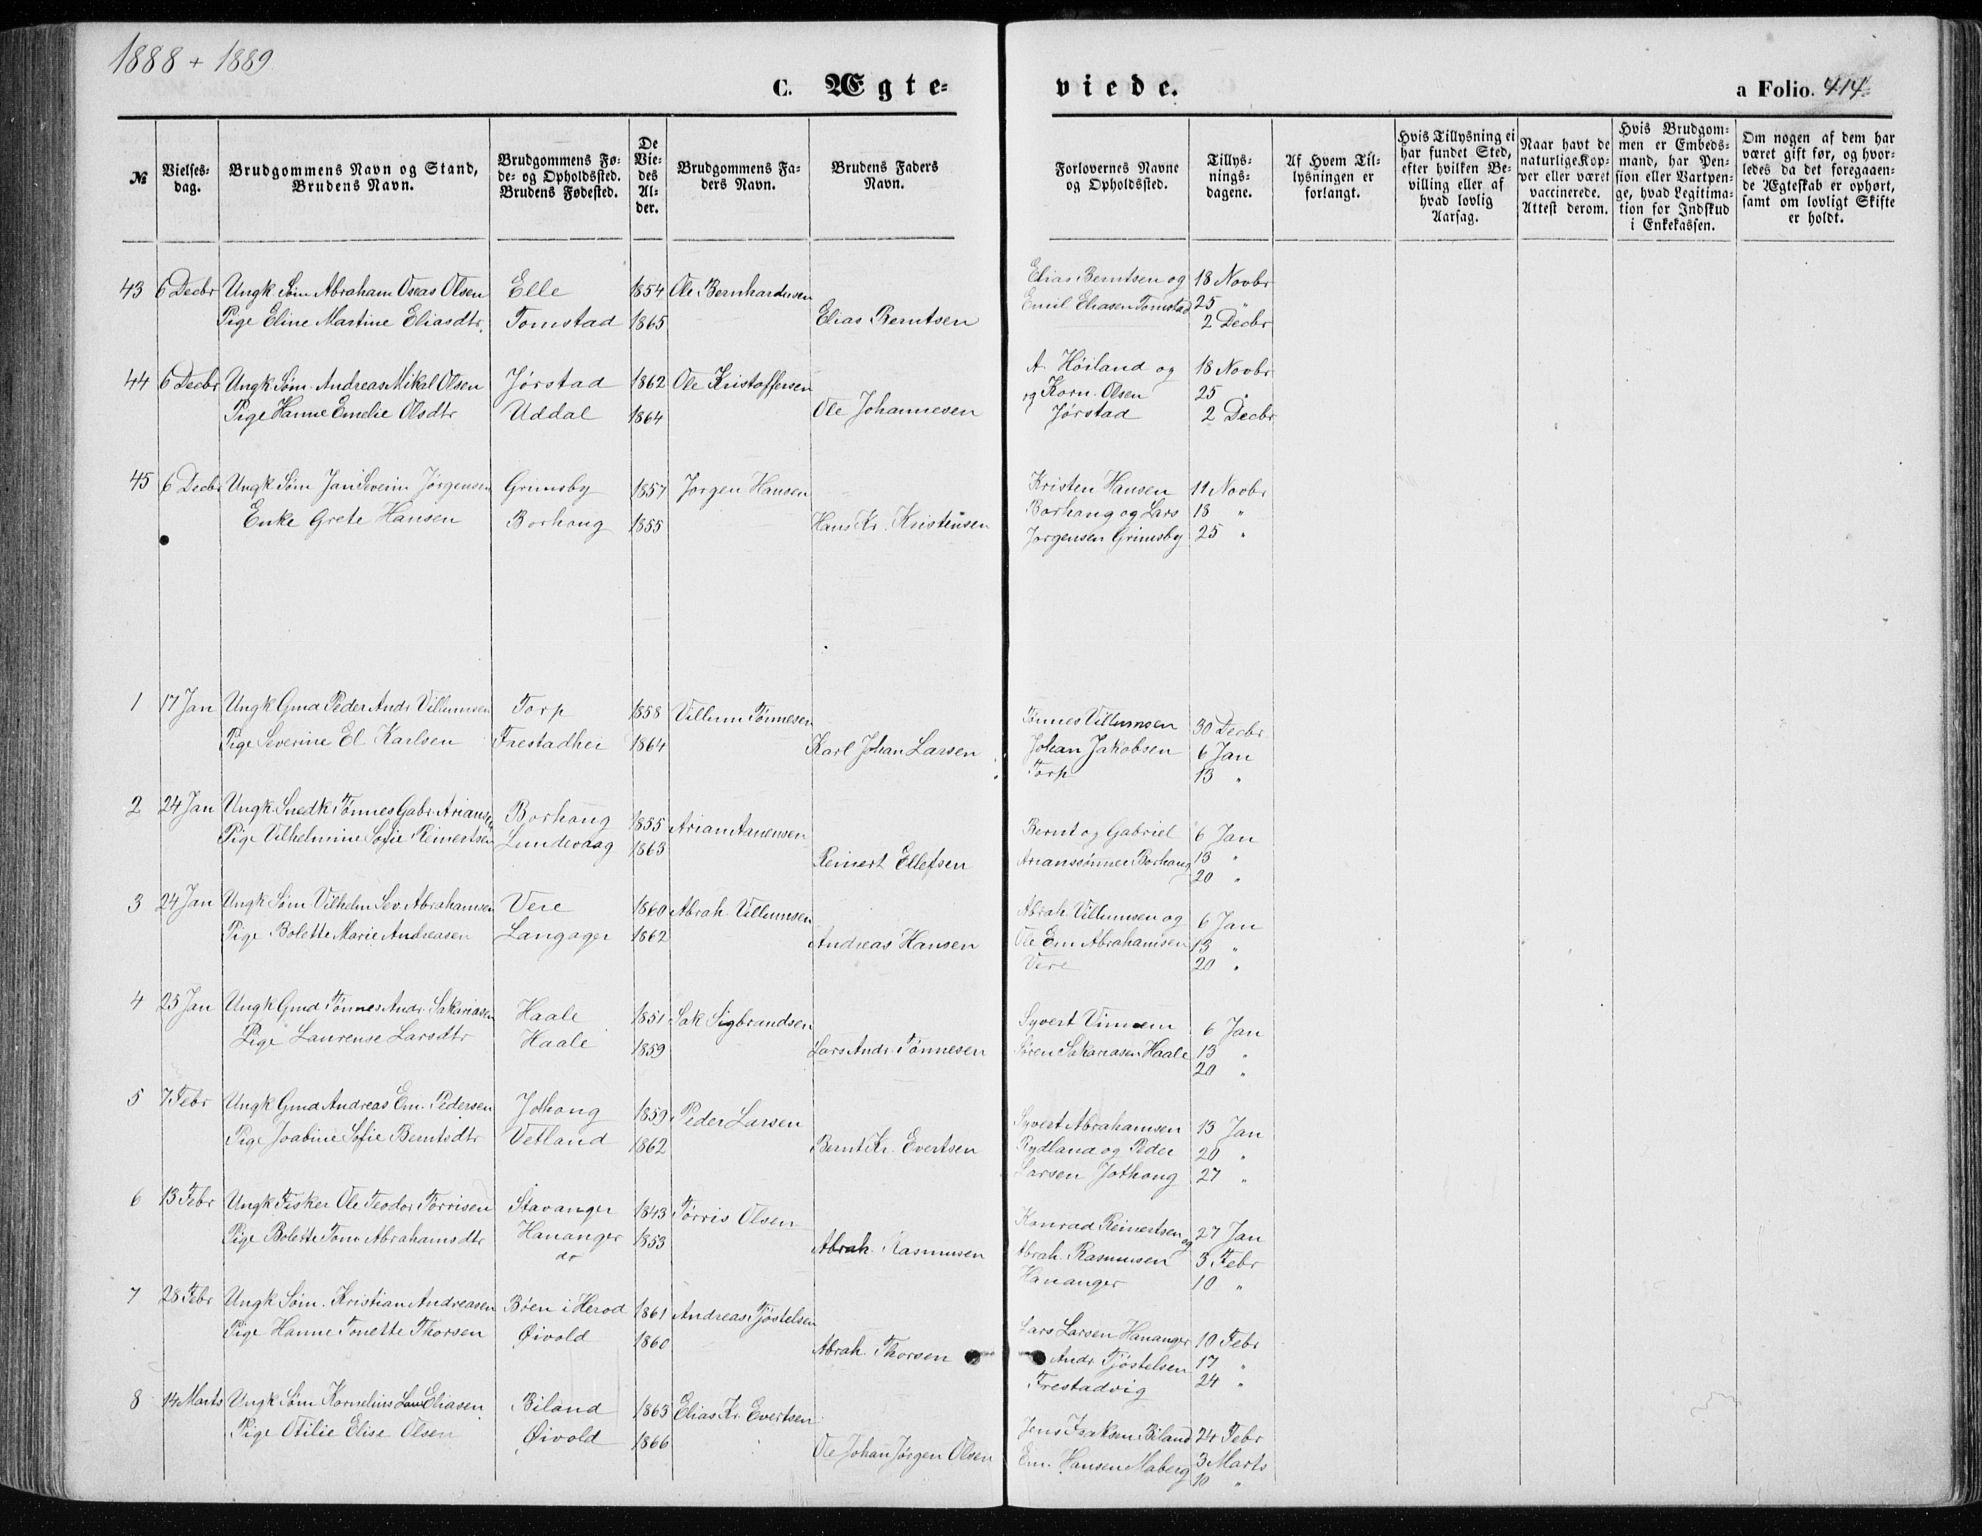 1888 + 1889
C. Ægteviede. a Folio. 414
№
Vielsesdag.
Brudgommens Navn og Stand, Brudens Navn.
Brudgommens Føde- og Opholdssted. Brudens Fødested.
De Viedes Alder.
Brudgommens Faders Navn.
Brudens Faders Navn.
Forlovernes Navne og Opholdssted.
Tillysningsdagene.
Af Hvem Tillysningen er forlangt.
Hvis Tillysning ei har fundet Sted, efter hvilken Bevilling eller af hvad lovlig Aarsag.
Naar havt de naturlige Kopper eller været vaccinerede. Attest derom.
Hvis Brudgommen er Embedsmand, har Pension eller Vartpenge, hvad Legitimation for Indskud i Enkekassen.
Om nogen af dem har været gift før, og hvorledes da det foregaaende Ægteskab er ophørt, samt om lovligt Skifte er holdt.
43 6 Decbr Ungk Søm Abraham Oseas Olsen Elle 1854 Ole Bernhardusen Elias Berntsen og 18 Novbr
Pige Eline Martine Eliasdtr. Tomstad 1865 Elias Berntsen Emil Eliasen Tomstad 25 "
2 Decbr
44 6 Decbr Ungk Søm. Andreas Mikal Olsen Jørstad 1862 Ole Kristoffersen A. Høiland og 18 Novbr
Pige Hanne Emelie Olsdtr Uddal 1864 Ole Johannesen og Korn. Olsen 25 "
Jørstad 2 Decbr
45 6 Decbr Ungk Søm Jan Severin Jørgensen Grimsby 1857 Jørgen Hansen Kristen Hansen 11 Novbr
Enke Grete Hansen Borhaug 1855 Hans Kr. Kristensen Borhaug og Lars 18 "
Jørgensen Grimsby 25 "
1 17 Jan Ungk Gmd Peder Andr Villumsen Torp 1858 Villum Tønnesen Tønnes Villumsen 30 Decbr
Pige Severine El Karlsen Frestadhei 1864 Karl Johan Larsen Johan Jakobsen 6 Jan
Torp 13 "
2 24 Jan Ungk Snedk Tønnes Gabr. Ariansen Borhaug 1855 Arian Aanensen Bernt og Gabriel 6 Jan
Pige Vilhelmine Sofie Reinertsen Lundevaag 1863 Reinert Ellefsen Arianssønner Borhaug 13 "
20 "
3 24 Jan Ungk Søm Vilhelm Sev. Abrahamsen Vere 1860 Abrah. Villumsen Abrah Villumsen og 6 Jan
Pige Bolette Marie Andreasen Langager 1862 Andreas Hansen Ole Em Abrahamsen 13 "
Vere 20 "
4 25 Jan Ungk Gmd Tønnes Andr. Sakariasen Haale 1851 Sak Sigbrandsen Syvert Vinnem 6 Jan
Pige Laurense Larsdtr Haale 1859 Lars Andr. Tønnesen Søren Sakariasen Haale 13 "
20 "
5 7 Febr Ungk Gmd Andreas Em. Pedersen Jothaug 1859 Peder Larsen Syvert Abrahamsen 13 Jan
Pige Joabine Sofie Berntsdtr Vetland 1862 Bernt Kr. Evertsen Rydland og Peder 20 "
Larsen Jothaug 27 "
6 13 Febr Ungk Fisker Ole Teodor Tørrisen Stavanger 1843 Tørris Olsen Konrad Reinertsen og 27 Jan
Pige Bolette Tom. Abrahamsdtr Hananger 1853 Abrah. Rasmusen Abrah. Rasmusen 3 Febr
do Hananger 10 "
7 28 Febr Ungk Søm. Kristian Andreasen Bøen i Herod 1861 Andreas Tjøstelsen Lars Larsen Hananger 10 Febr
Pige Hanne Tonette Thorsen Øivold 1860 Abrah. Thorsen Andr Tjøstelsen 17 "
Frestadvig 24 "
8 14 Marts Ungk Søm Kornelius Eliasen Biland 1863 Elias Kr. Evertsen Jens Isaksen Biland 24 Febr
Pige Otilie Elise Olsen Øivold 1866 Ole Johan Jørgen Olsen Em. Hansen Maberg 3 Marts
10 "